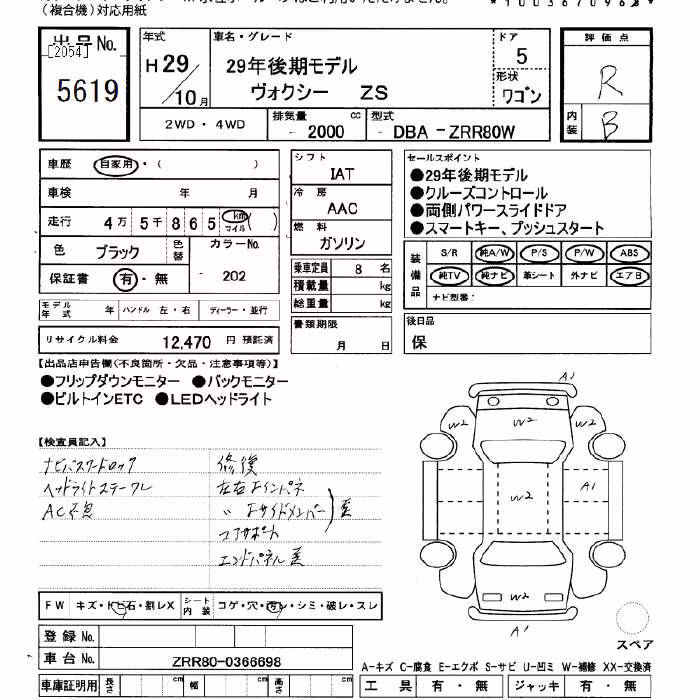 (複合機)対応用紙
出品No.
[2054]
5619
年式
H29/10月
車名・グレード
29年後期モデル
ヴォクシー ZS
ドア
5
形状
ワゴン
評価点
R
内装
B
2WD・4WD
排気量 cc
- 2000
型式
- DBA - ZRR80W
車歴 自家用・( )
車検 年 月
走行 4万 5千 8 6 5 km マイル ( )
色 ブラック
色替
カラーNo.
- 202
保証書 有・無
モデル年式 年 ハンドル 左・右 ディーラー・並行
リサイクル料金 12,470 円 預託済
シフト
IAT
冷房
AAC
燃料
ガソリン
乗車定員 8 名
積載量 kg
総重量 kg
書類期限
月 日
セールスポイント
●29年後期モデル
●クルーズコントロール
●両側パワースライドドア
●スマートキー、プッシュスタート
装備品
S/R 純A/W P/S P/W ABS
純TV 純ナビ 革シート 外ナビ エアB
ナビ型番:
後日品
保
【出品店申告欄(不良箇所・欠品・注意事項等)】
●フリップダウンモニター ●バックモニター
●ビルトインETC ●LEDヘッドライト
【検査員記入】
ナビパスワードロック
ヘッドライトステーワレ
AC不良
修復
左右
コアサポート
エンドパネル
A1
W2
W2
W2
W2
A1
W2
A1
スペア
FW キズ・トビ石・割レX
シート内装 コゲ・穴・汚レ・シミ・破レ・スレ
登録No.
車台No. ZRR80-0366698
車庫証明用 長さ cm 幅 cm 高さ cm
A-キズ C-腐食 E-エクボ S-サビ U-凹ミ W-補修 XX-交換済
工具 有・無 ジャッキ 有・無